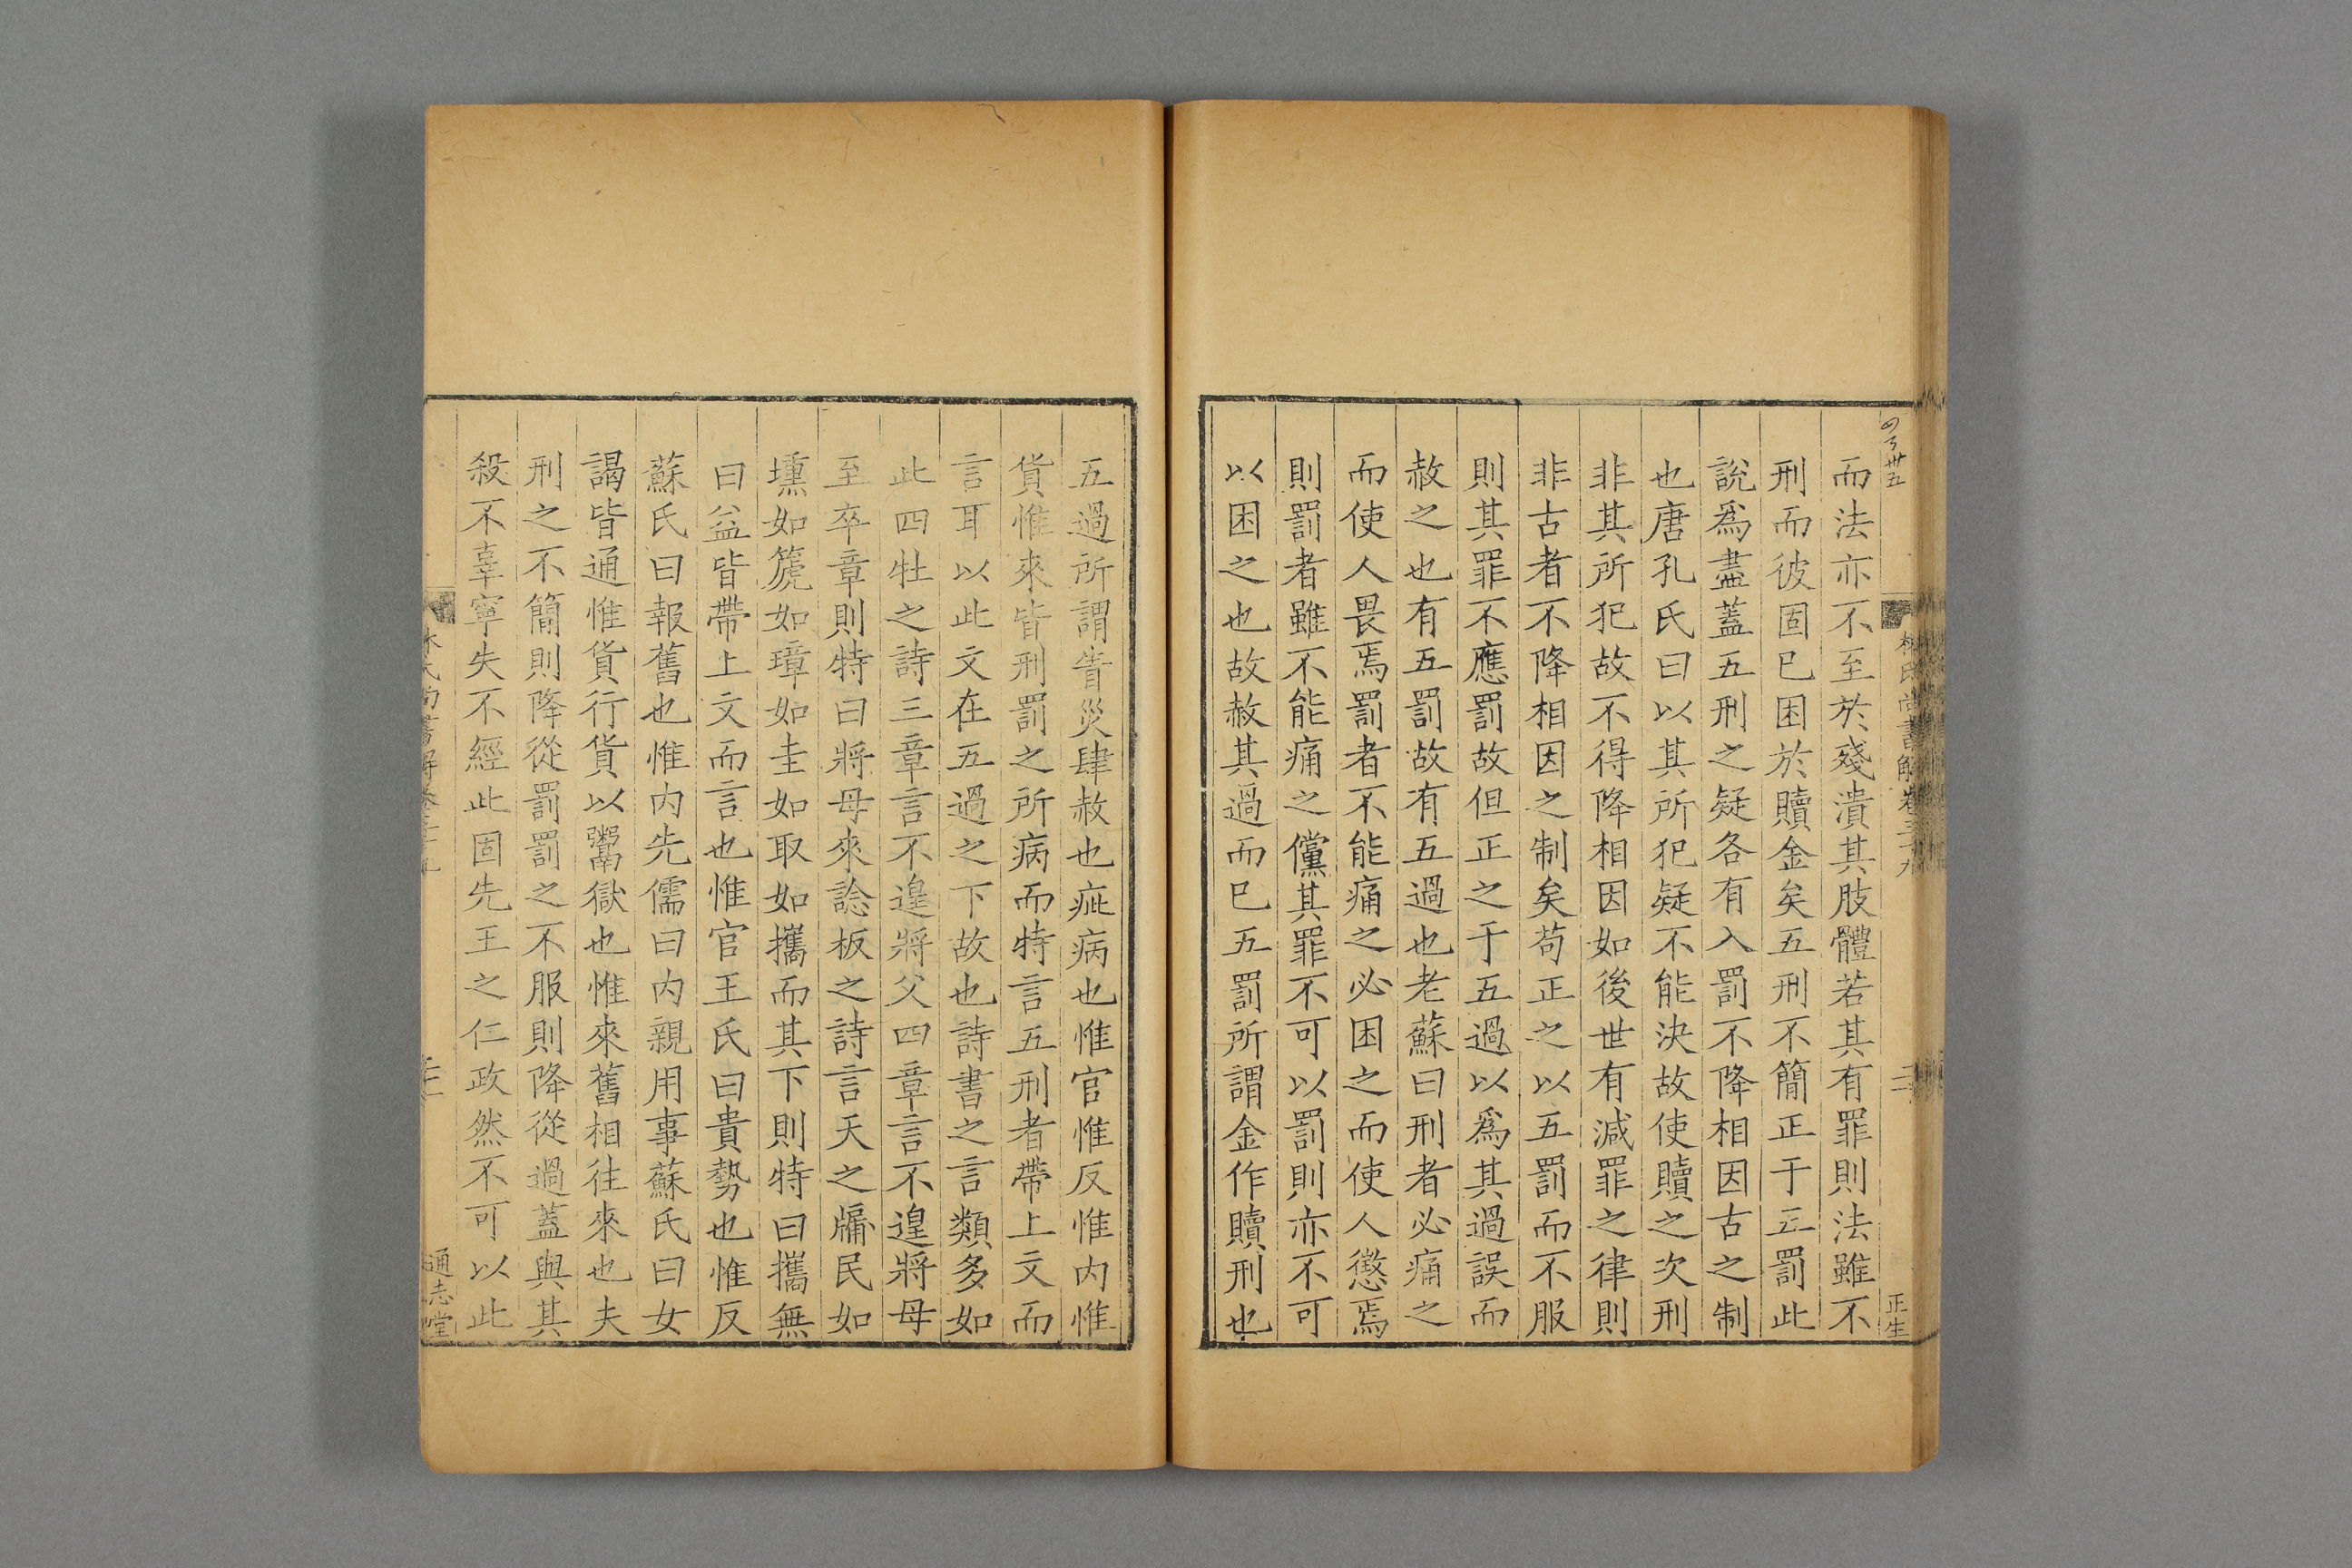 而法亦不至於殘潰其肢體若其有罪則法雖不
刑而彼固已困於贖金矣五刑不簡正于五罰此
說爲盡蓋五刑之疑各有入罰不降相因古之制
也唐孔氏曰以其所犯疑不能決故使贖之次刑
非其所犯故不得降相因如後世有減罪之律則
非古者不降相因之制矣苟正之以五罰而不服
則其罪不應罰故但正之于五過以爲其過誤而
赦之也有五罰故有五過也老蘇曰刑者必痛之
而使人畏焉罰者不能痛之必困之而使人懲焉
則罰者雖不能痛之儻其罪不可以罰則亦不可
以困之也故赦其過而已五罰所謂金作贖刑也
五過所謂眚災肆赦也疵病也惟官惟反惟內惟
貨惟來皆刑罰之所病而特言五刑者帶上文而
言耳以此文在五過之下故也詩書之言類多如
此四牡之詩三章言不遑將父四章言不遑將母
至卒章則特曰將母來諗板之詩言天之牖民如
壎如篪如璋如圭如取如攜而其下則特曰攜無
曰益皆帶上文而言也惟官王氏曰貴勢也惟反
蘇氏曰報舊也惟內先儒曰內親用事蘇氏曰女
謁皆通惟貨行貨以鬻獄也惟來舊相往來也夫
刑之不簡則降從罰罰之不服則降從過蓋與其
殺不辜寧失不經此固先王之仁政然不可以此
林氏尚書解卷三十九
二
正生
通志堂